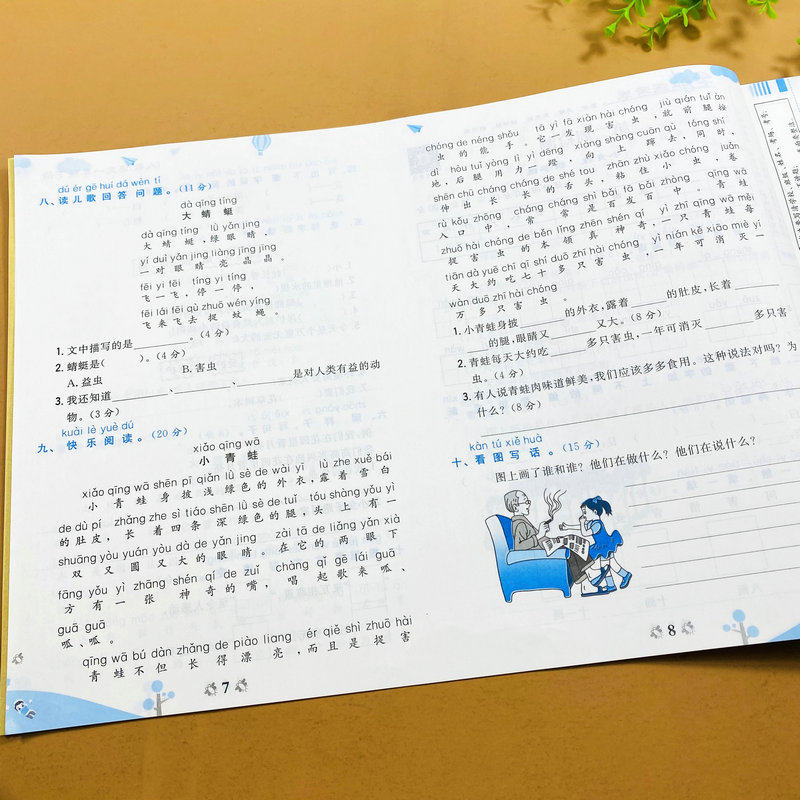 dú ér gē huí dá wèn tí
八、读儿歌回答问题。(11分)
dà qīng tíng
大蜻蜓
dà qīng tíng lǜ yǎn jing
大蜻蜓,绿眼睛,
yí duì yǎn jing liàng jīng jīng
一对眼睛亮晶晶。
fēi yi fēi tíng yi tíng
飞一飞,停一停,
fēi lái fēi qù zhuō wén yíng
飞来飞去捉蚊蝇。
1. 文中描写的是________。(4分)
2. 蜻蜓是( )。(4分)
A. 益虫 B. 害虫
3. 我还知道________、________、________是对人类有益的动
物。(3分)
kuài lè yuè dú
九、快乐阅读。(20分)
xiǎo qīng wā
小青蛙
xiǎo qīng wā shēn pī qiǎn lǜ sè de wài yī lù zhe xuě bái
小青蛙身披浅绿色的外衣,露着雪白
de dù pí zhǎng zhe sì tiáo shēn lǜ sè de tuǐ tóu shàng yǒu yì
的肚皮,长着四条深绿色的腿,头上有一
shuāng yòu yuán yòu dà de yǎn jing zài tā de liǎng yǎn xià
双又圆又大的眼睛。在它的两眼下
fāng yǒu yì zhāng shén qí de zuǐ chàng qǐ gē lái guā
方有一张神奇的嘴,唱起歌来呱、
guā guā
呱、呱。
qīng wā bú dàn zhǎng de piào liang ér qiě shì zhuō hài
青蛙不但长得漂亮,而且是捉害
7
chóng de néng shǒu tā yì fā xiàn hài chóng jiù qián tuǐ àn
虫的能手。它一发现害虫,就前腿按
dì hòu tuǐ yòng lì yì dēng xiàng shàng cuān qù tóng shí
地,后腿用力一蹬,向上蹿去,同时,
shēn chū cháng cháng de shé tou zhān zhù xiǎo chóng juǎn
伸出长长的舌头,粘住小虫,卷
rù kǒu zhōng cháng cháng shì bǎi fā bǎi zhòng qīng wā
入口中,常常是百发百中。青蛙
zhuō hài chóng de běn lǐng zhēn shén qí yì zhī qīng wā měi
捉害虫的本领真神奇,一只青蛙每
tiān dà yuē chī qī shí duō zhī hài chóng yì nián kě xiāo miè yí
天大约吃七十多只害虫,一年可消灭一
wàn duō zhī hài chóng
万多只害虫。
1. 小青蛙身披______的外衣,露着______的肚皮,长着______
______的腿,眼睛又______又大。(8分)
2. 青蛙每天大约吃______多只害虫,一年可消灭______多只害
虫。(4分)
3. 有人说青蛙肉味道鲜美,我们应该多多食用。这种说法对吗?为
什么?(8分)
kàn tú xiě huà
十、看图写话。(15分)
图上画了谁和谁?他们在做什么?他们在说什么?
8